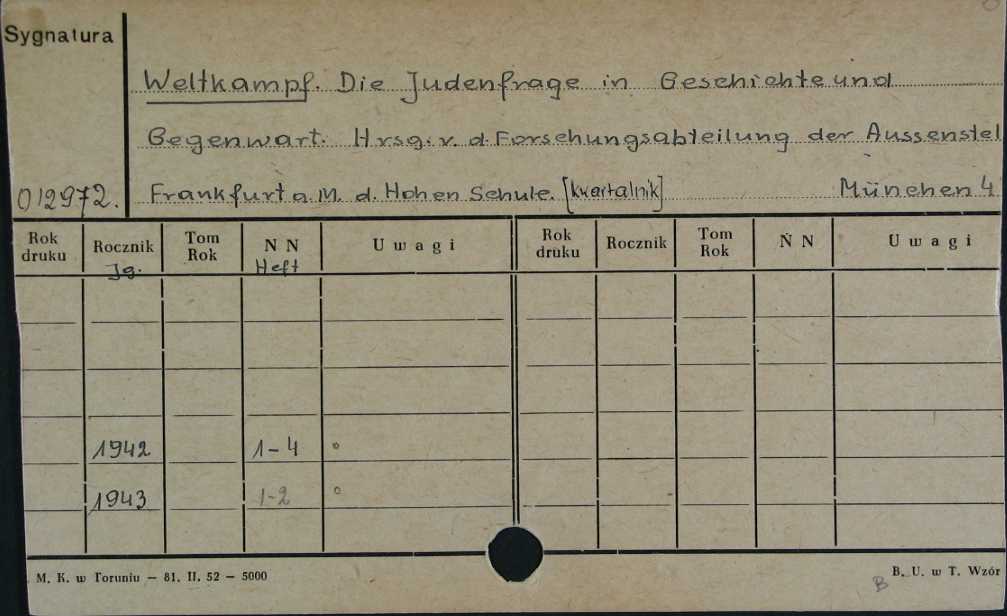 Sygnatura
Weltkampf. Die Judenfrage in Geschichte und
Gegenwart. Hrsg. v. d. Forschungsabteilung der Aussenstel
012972.
Frankfurt a. M. d. Hohen Schule. [kwartalnik] München 4
Rok druku Rocznik Tom Rok N N U w a g i Rok druku Rocznik Tom Rok N N U w a g i
Jg. Heft
1942 1-4 °
1943 1-2 °
M. K. w Toruniu — 81. II. 52 — 5000
B. U. w T. Wzór
B